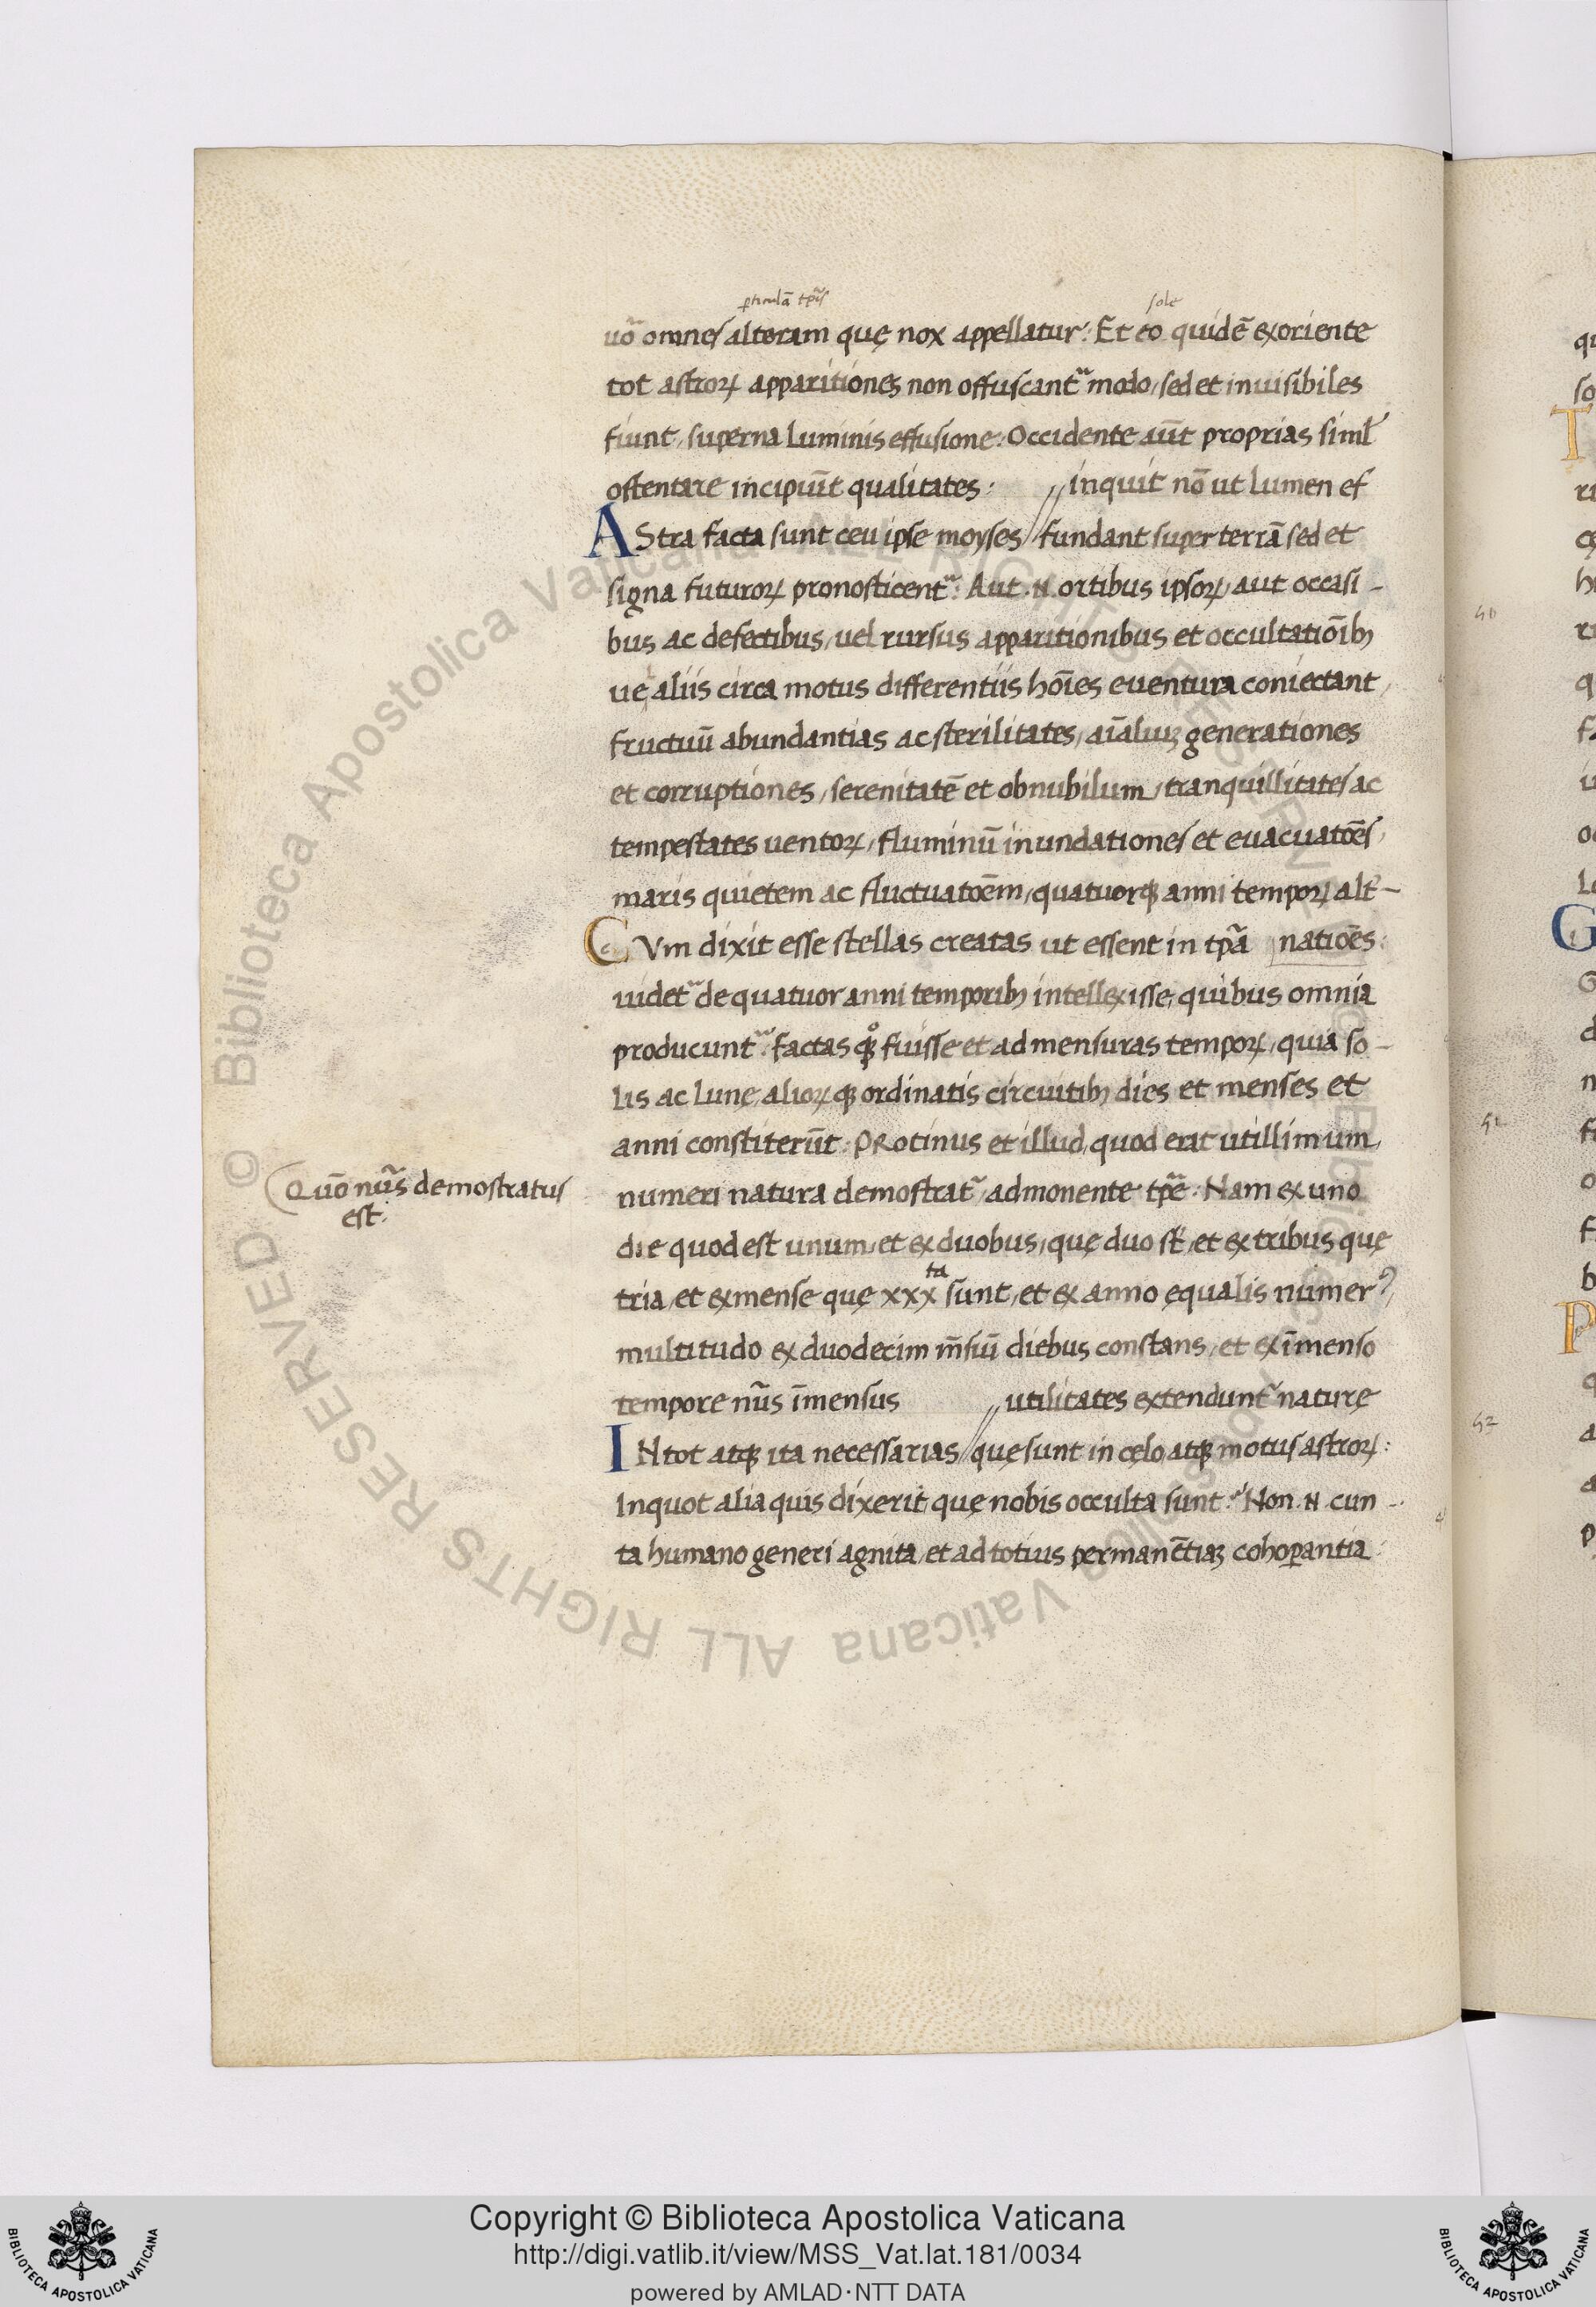 ꝑticulā tp̄is
sole
uō omnes alteram quę nox appellatur: Et eo quidē exoriente
tot astroꝝ apparitiones non offuscant᷑ modo, sed et inuisibiles
fiunt, superna luminis effusione: Occidente aūt proprias siml̄
ostentare incipiūt qualitates: // inquit nō ut lumen ef
AStra facta sunt ceu ipse moyses // fundant super terrā sed et
signa futuroꝝ pronosticent᷑: Aut .N. ortibus ipsoꝝ, aut occasi-
bus ac defectibus, uel rursus apparitionibus et occultatiōibꝫ
uę aliis circa motus differentiis hōies euentura coniectant,
fructuū abundantias ac sterilitates, aīaliuꝫ generationes
et corruptiones, serenitatē et obnubilum, tranquillitates ac
tempestates uentoꝝ, fluminū inundationes et euacuatōes,
maris quietem ac fluctuatōem, quatuorqꝫ anni tempoꝝ alt̄-
CVm dixit esse stellas creatas ut essent in tp̄a nationēs:
uidet᷑ de quatuor anni temporibꝫ intellexisse, quibus omnia
producunt᷑: factas qͦꝫ fuisse et ad mensuras tempoꝝ, quia so-
lis ac lunę, alioꝝqꝫ ordinatis circuitibꝫ dies et menses et
anni constiterūt: PRotinus et illud, quod erat utillimum,
numeri natura demostrat᷑, admonente tp̄re: Nam ex uno
Quō nūs demostratus
est:
die quod est unum, et ex duobus, quę duo st̄, et ex tribus quę
tria, et ex mense quę xxxᵗᵃ sunt, et ex anno ęqualis numerꝰ,
multitudo ex duodecim m̄siū diebus constans, et ex īmenso
tempore nūs īmensus // utilitates extendunt᷑ naturę
INtot atqꝫ ita necessarias // quę sunt in cęlo atqꝫ motus astroꝝ:
Inquot alia quis dixerit, quę nobis occulta sunt: Non .N. cun-
ta humano generi agnita, et ad totius permanētiaꝫ cohoꝑantia:
Copyright © Biblioteca Apostolica Vaticana
http://digi.vatlib.it/view/MSS_Vat.lat.181/0034
powered by AMLAD·NTT DATA